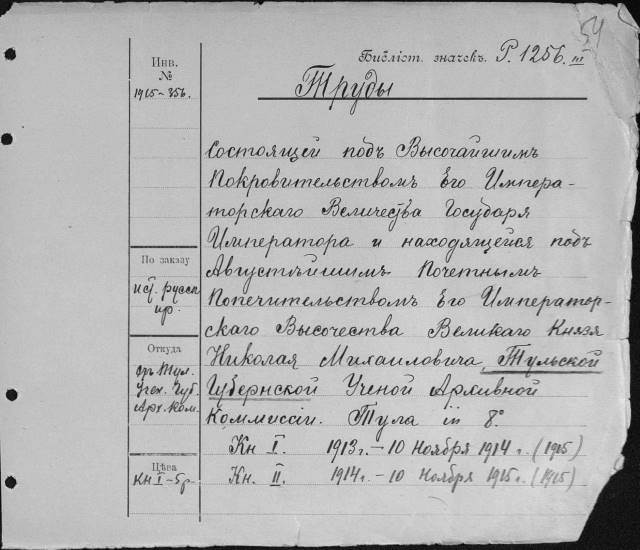 54
Библіот. значекъ. Р. 1256. III
Инв.
№
1915-356.
Труды
состоящей подъ Высочайшимъ
Покровительствомъ Его Импера-
торскаго Величества Государя
Императора и находящейся подъ
Августѣйшимъ Почетнымъ
Попечительствомъ Его Император-
скаго Высочества Великаго Князя
Николая Михаиловича, Тульской
Губернской Ученой Архивной
Коммиссіи. Тула in 8°
Кн I. 1913 г. – 10 Ноября 1914 г. (1915)
Кн. II. 1914 г. – 10 Ноября 1915 г. (1915)
По заказу
ист. русск
пр.
Откуда
отъ Тул.
Учен. Губ.
Арх. Ком.
Цѣна
Кн I – 5 р.